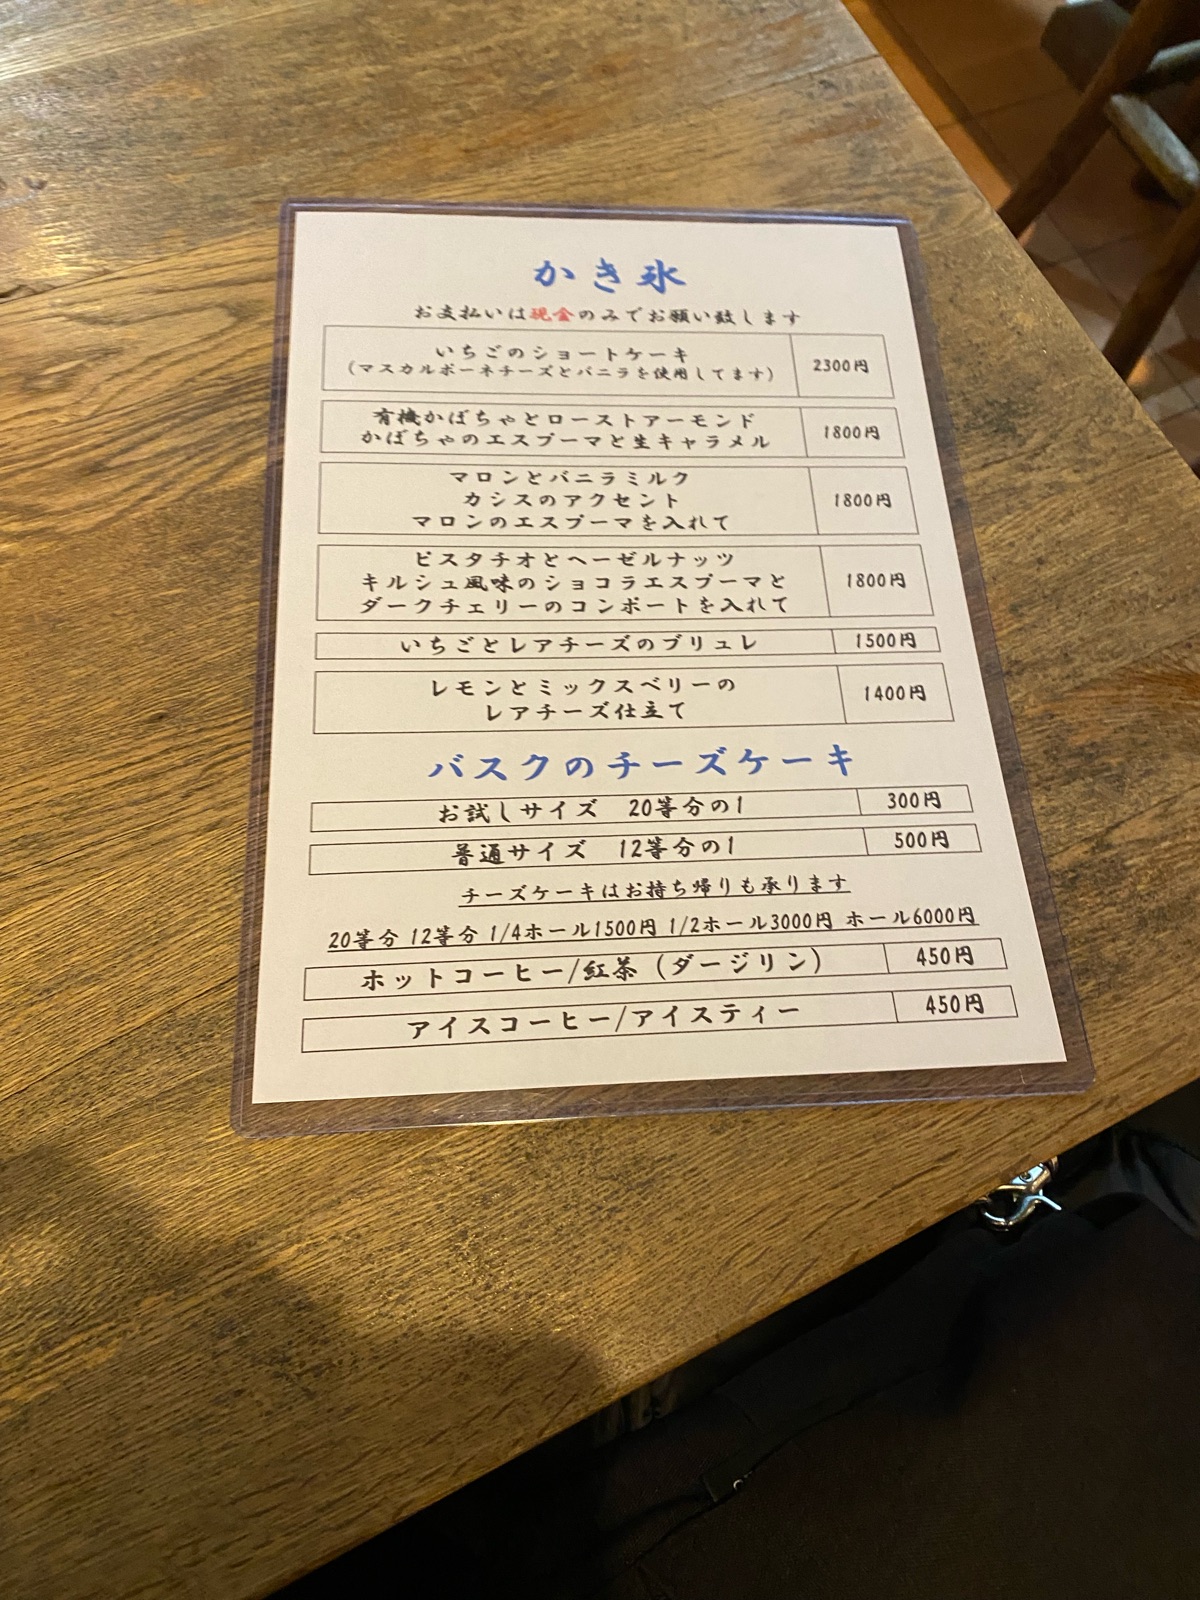 かき氷
お支払いは現金のみでお願い致します
いちごのショートケーキ
(マスカルポーネチーズとバニラを使用してます) 2300円
有機かぼちゃとローストアーモンド
かぼちゃのエスプーマと生キャラメル 1800円
マロンとバニラミルク
カシスのアクセント 1800円
マロンのエスプーマを入れて
ピスタチオとヘーゼルナッツ
キルシュ風味のショコラエスプーマと 1800円
ダークチェリーのコンポートを入れて
いちごとレアチーズのブリュレ 1500円
レモンとミックスベリーの 1400円
レアチーズ仕立て
バスクのチーズケーキ
お試しサイズ 20等分の1 300円
普通サイズ 12等分の1 500円
チーズケーキはお持ち帰りも承ります
20等分 12等分 1/4ホール1500円 1/2ホール3000円 ホール6000円
ホットコーヒー/紅茶(ダージリン) 450円
アイスコーヒー/アイスティー 450円